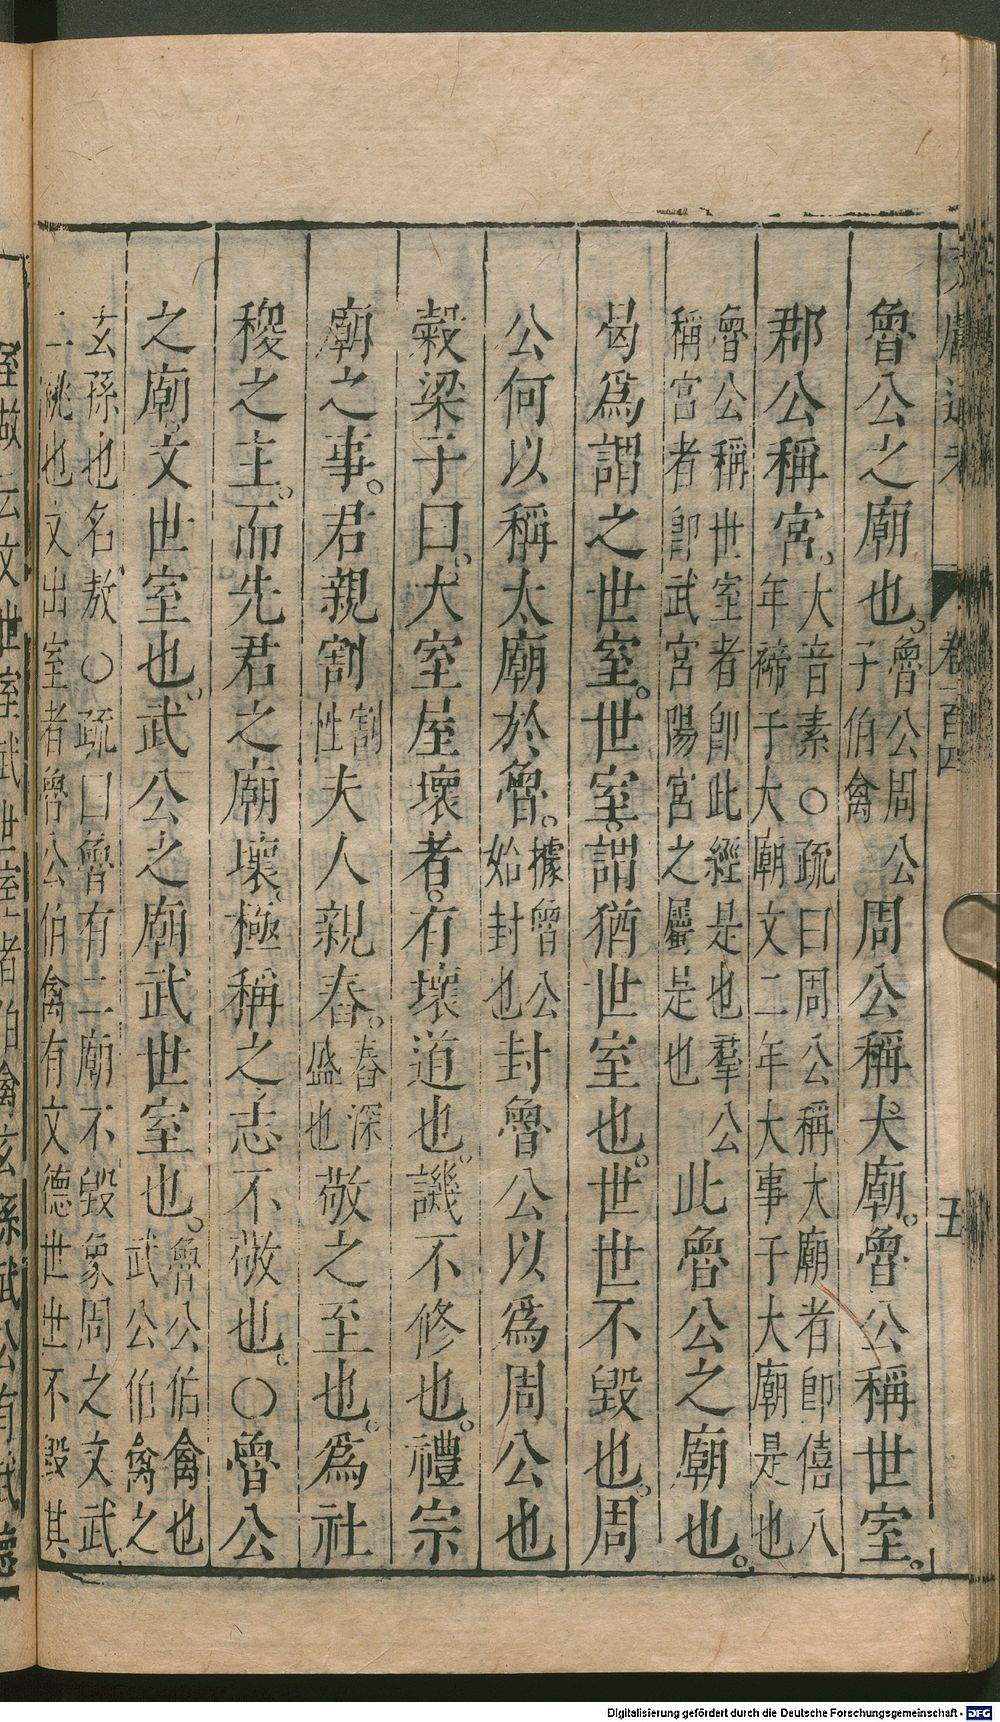 魯公之廟也。魯公周公子伯禽周公稱大廟。魯公稱世室。
郡公稱宮。大音素○疏曰周公稱大廟者卽僖八年禘于大廟文二年大事于大廟是也
魯公稱世室者卽此經是也羣公稱宮者卽武宮陽宮之屬是也此魯公之廟也。
曷爲謂之世室。世室。謂猶世室也。世世不毀也。周
公何以稱太廟於魯。據魯公始封也封魯公以爲周公也
穀梁子曰。大室屋壞者。有壞道也。譏不修也。禮宗
廟之事。君親割割牲夫人親舂。舂深盛也敬之至也。爲社
稷之主。而先君之廟壞、極稱之、志不敬也。○魯公
之廟。文世室也。武公之廟武世室也。魯公伯禽也武公伯禽之
玄孫也名敖○疏曰魯有二廟不毀象周之文武二祧也文世室者魯公伯禽有文德世世不毀其
卷百四
五
Digitalisierung gefördert durch die Deutsche Forschungsgemeinschaft - DFG